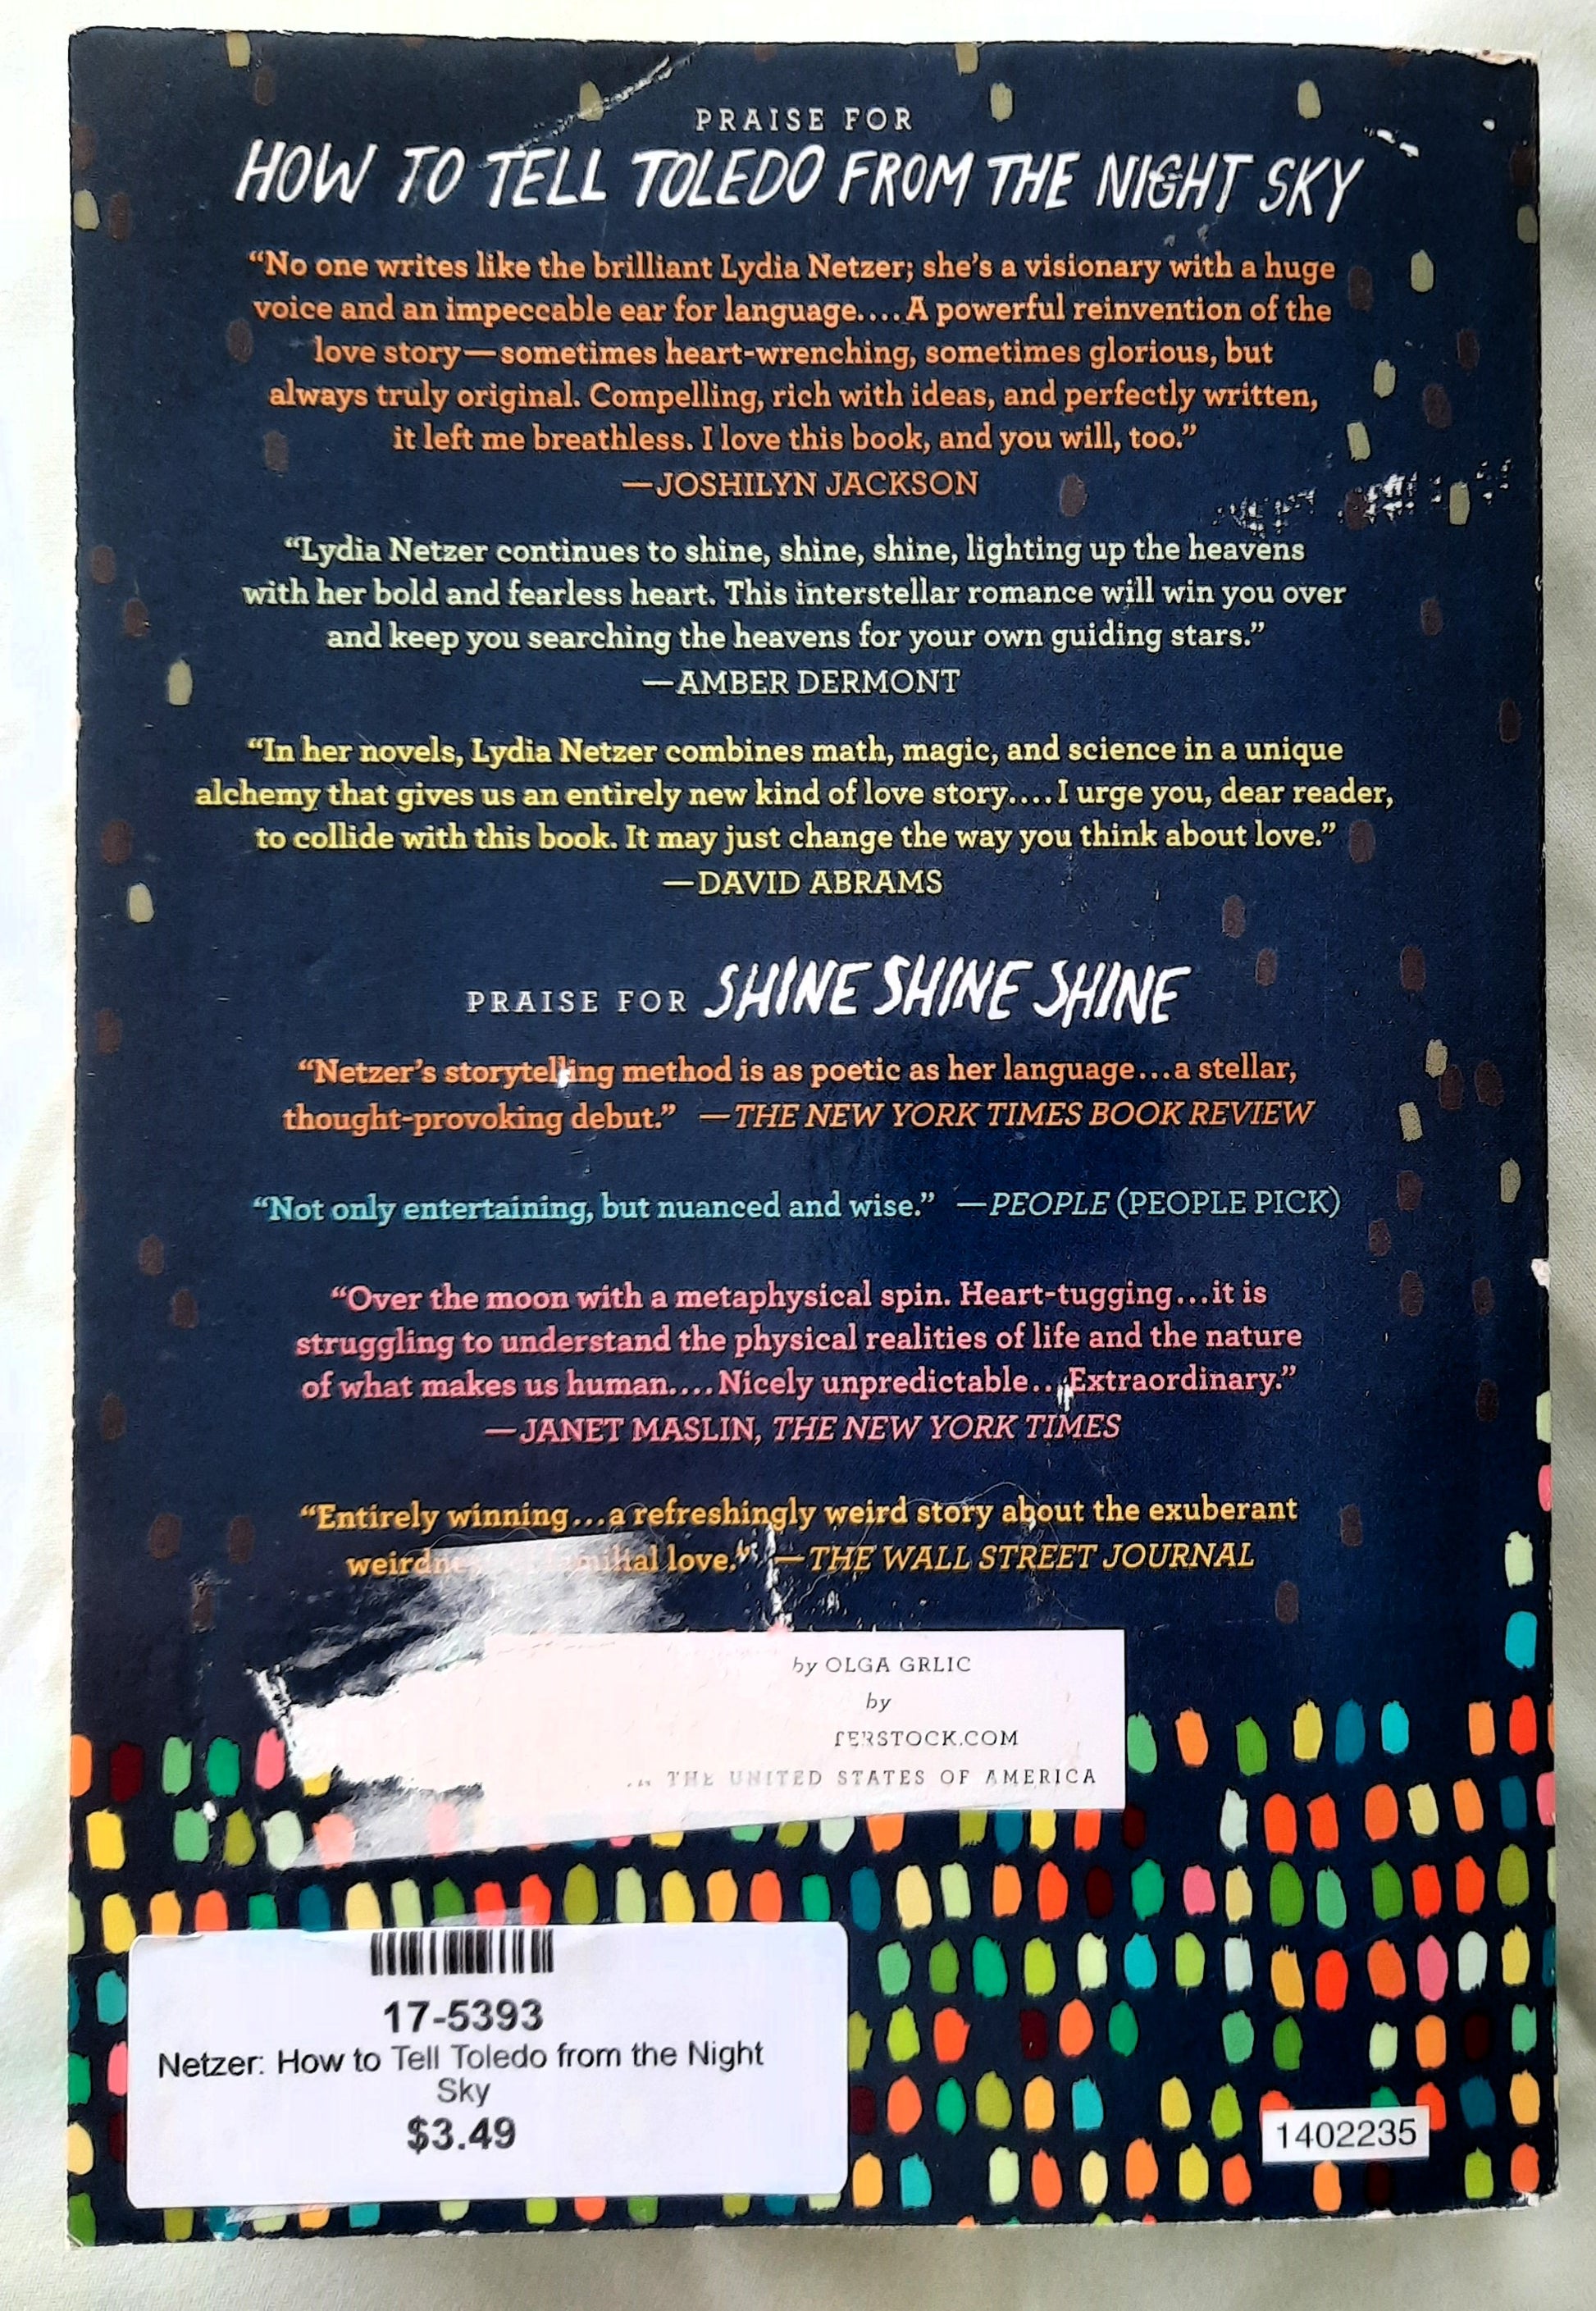 PRAISE FOR
HOW TO TELL TOLEDO FROM THE NIGHT SKY
“No one writes like the brilliant Lydia Netzer; she’s a visionary with a huge
voice and an impeccable ear for language.... A powerful reinvention of the
love story—sometimes heart-wrenching, sometimes glorious, but
always truly original. Compelling, rich with ideas, and perfectly written,
it left me breathless. I love this book, and you will, too.”
—JOSHILYN JACKSON
“Lydia Netzer continues to shine, shine, shine, lighting up the heavens
with her bold and fearless heart. This interstellar romance will win you over
and keep you searching the heavens for your own guiding stars.”
—AMBER DERMONT
“In her novels, Lydia Netzer combines math, magic, and science in a unique
alchemy that gives us an entirely new kind of love story.... I urge you, dear reader,
to collide with this book. It may just change the way you think about love.”
—DAVID ABRAMS
PRAISE FOR SHINE SHINE SHINE
“Netzer’s storytelling method is as poetic as her language...a stellar,
thought-provoking debut.” —THE NEW YORK TIMES BOOK REVIEW
“Not only entertaining, but nuanced and wise.” —PEOPLE (PEOPLE PICK)
“Over the moon with a metaphysical spin. Heart-tugging...it is
struggling to understand the physical realities of life and the nature
of what makes us human.... Nicely unpredictable... Extraordinary.”
—JANET MASLIN, THE NEW YORK TIMES
“Entirely winning...a refreshingly weird story about the exuberant
love.” —THE WALL STREET JOURNAL
by OLGA GRLIC
by
TERSTOCK.COM
THE UNITED STATES OF AMERICA
17-5393
Netzer: How to Tell Toledo from the Night
Sky
$3.49
1402235